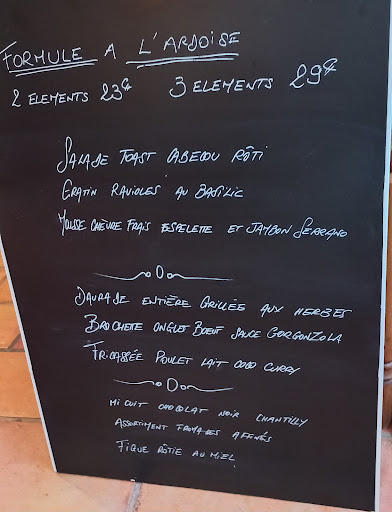 FORMULE A L'ARDOISE
2 ELEMENTS 23€ 3 ELEMENTS 29€
SALADE TOAST CABECOU RÔTI
GRATIN RAVIOLES AU BASILIC
MOUSSE CHÈVRE FRAIS ESPELETTE ET JAMBON SERRANO
DAURADE ENTIÈRE GRILLÉE AUX HERBES
BROCHETE ONGLET BOEUF SAUCE GORGONZOLA
FRICASSÉE POULET LAIT COCO CURRY
MI CUIT CHOCOLAT NOIR CHANTILLY
ASSORTIMENT FROMAGES AFFINÉS
FIGUE RÔTIE AU MIEL